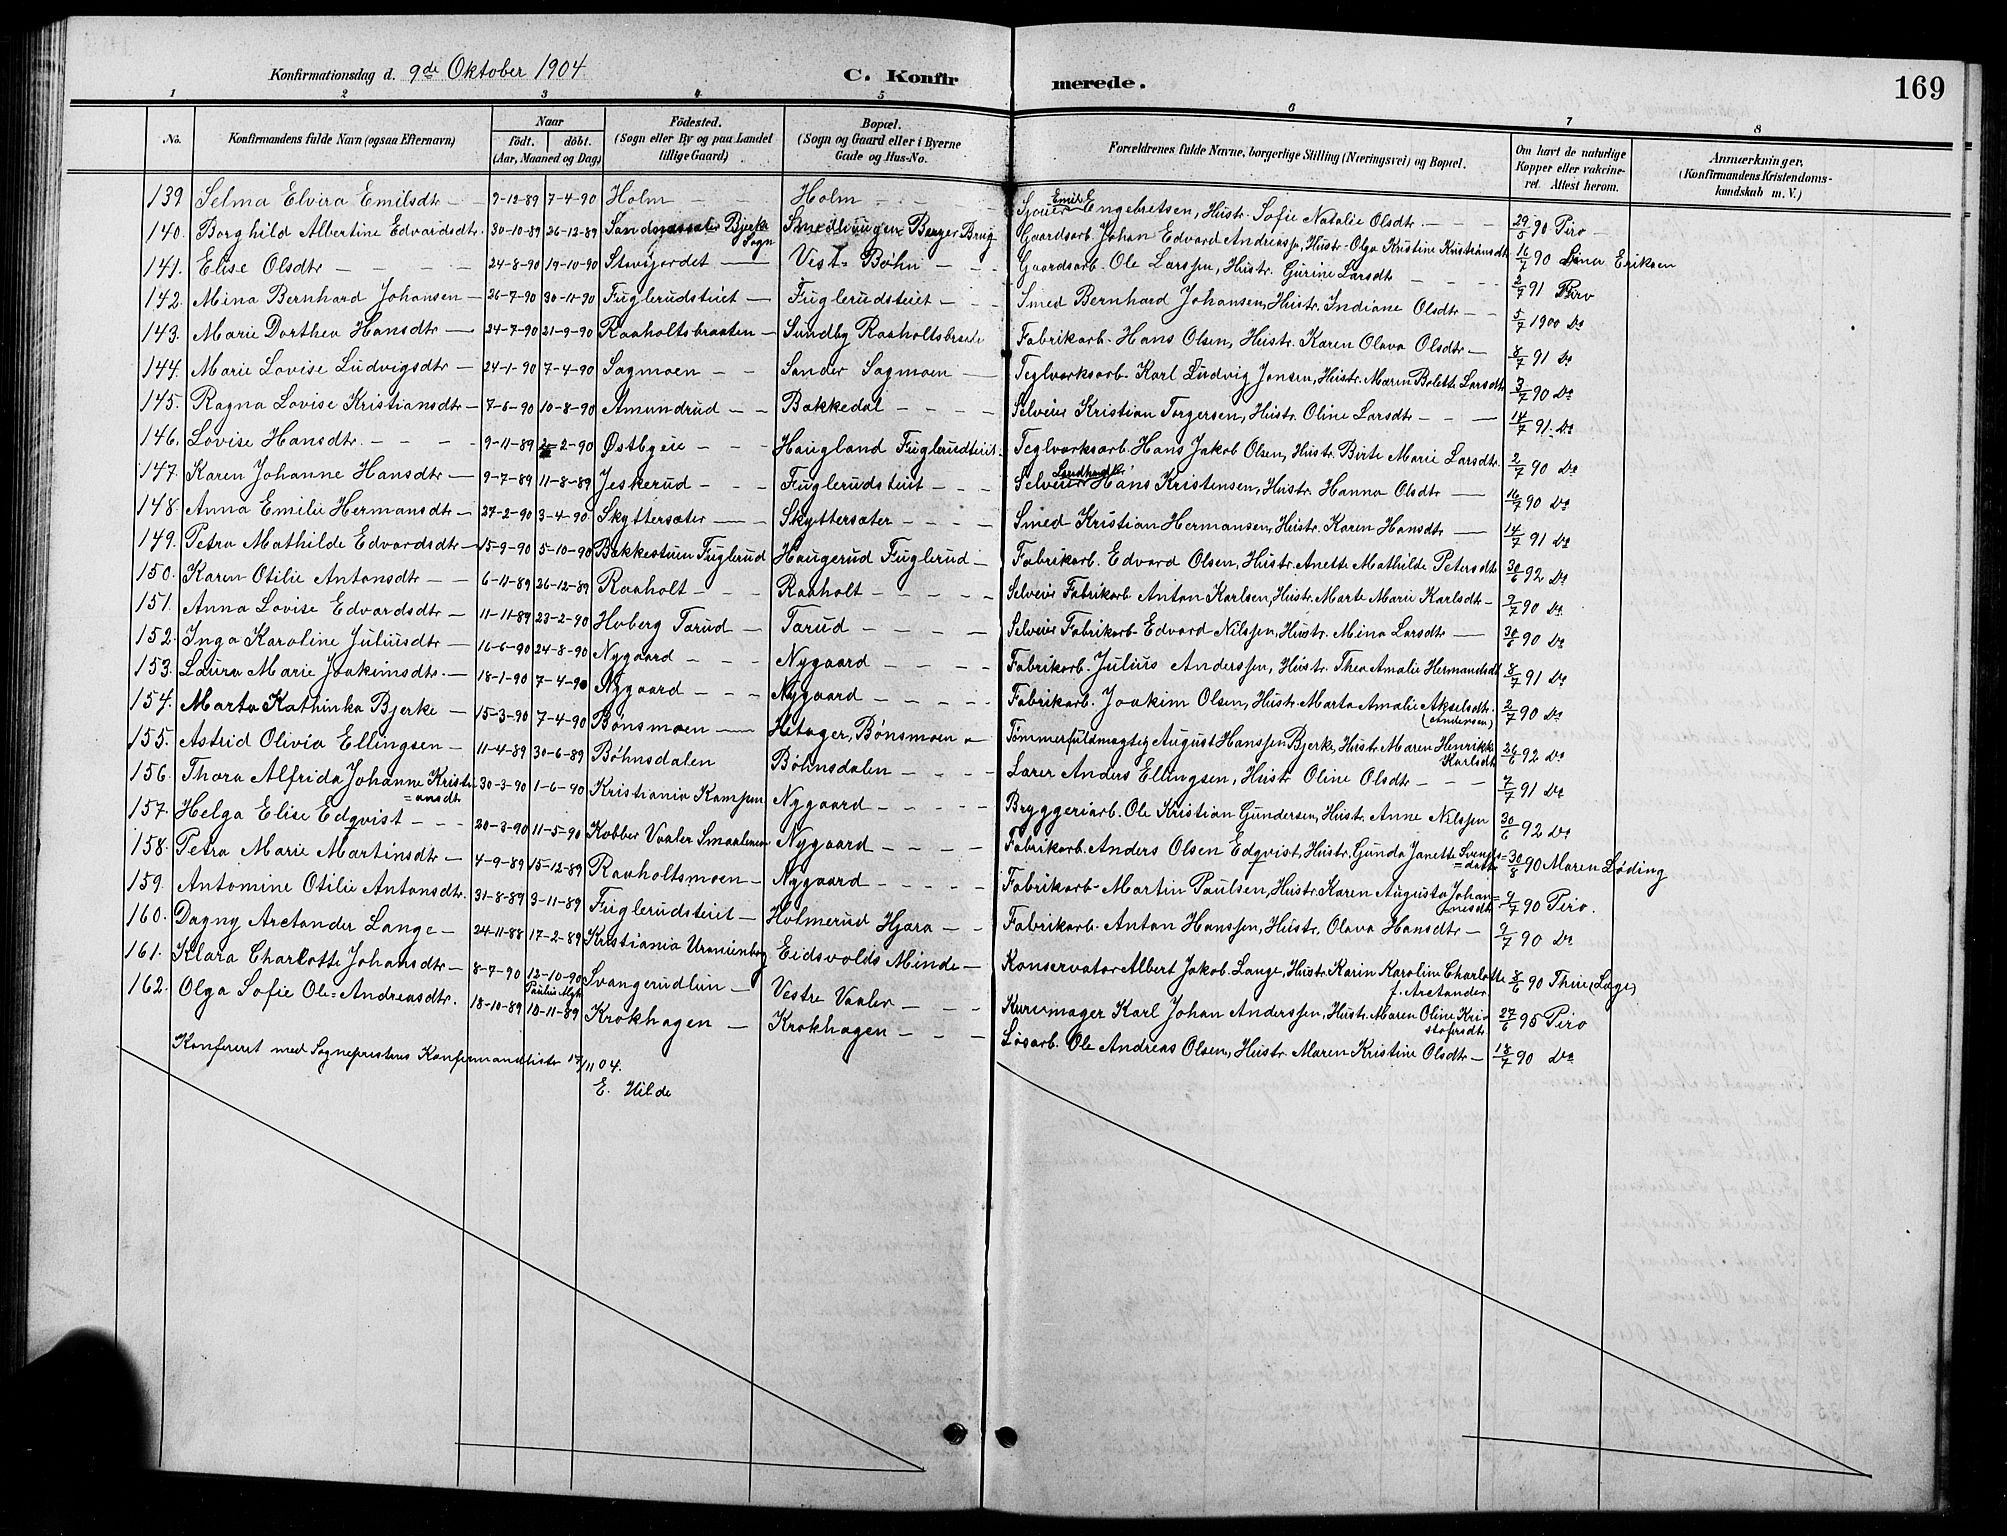 Konfirmationsdag d. 9de Oktober 1904 C. Konfirmerede. 169
1 2 3 4 5 6 7 8
No. Konfirmandens fulde Navn (ogsaa Efternavn) Naar født. døbt. (Aar, Maaned og Dag) Fødested. (Sogn eller By og paa Landet tillige Gaard) Bopæl. (Sogn og Gaard eller i Byerne Gade og Hus-No. Forældrenes fulde Navne, borgerlige Stilling (Næringsvei) og Bopæl. Om havt de naturlige Kopper eller vakcineret. Attest herom. Anmærkninger. (Konfirmandens Kristendomskundskab m. V.)
139 Selma Elvira Emilsdtr 9-12-89 7-4-90 Holm Holm Sjouer Emil E Engebretsen, Hustr. Sofie Natalie Olsdtr. 29/5 90 Piro
140. Borghild Albertine Edvardsdtr. 30-10-89 26-12-89 Bjerke Sogn Berger Brug Gaardsarb. Johan Edvard Andreassen, Hustr. Olga Kristine Kristiansdtr 16/7 90 Lina Eriksen
141. Elise Olsdtr 24-8-90 19-10-90 Stavsjordet Vest-Bøhn Gaardsarb. Ole Larssen, Hustr. Gurine Larsdtr 2/7 91 Piro
142. Mina Bernhard Johansen 26-7-90 30-11-90 Fuglerudsteiet Fuglerudsteiet Smed Bernhard Johansen, Hustr. Indiane Olsdtr 5/7 1900 Do
143. Marie Dorthea Hansdtr 24-7-90 21-9-90 Raaholtsbraaten Sundby Raaholtsbraate Fabrikarb. Hans Olsen, Hustr. Karen Olava Olsdtr 8/7 91 Do
144. Marie Lovise Ludvigsdtr 24-1-90 7-4-90 Sagmoen Sander Sagmoen Teglværksarb. Karl Ludvig Jonsen, Hustr. Maren Bolette Larsdtr 3/7 90 Do
145. Ragna Lovise Kristiansdtr 7-6-90 10-8-90 Amundrud Bakkedal Selveier Kristian Torgersen, Hustr. Oline Larsdtr 14/7 91. Do
146. Lovise Hansdtr. 9-11-89 2-2-90 Østbyeie Haugland Fuglerudteiet. Teglværksarb. Hans Jakob Olsen, Hustr. Birte Marie Larsdtr. 2/7 90 Do
147. Karen Johanne Hansdtr 9-7-89 11-8-89 Jeskerud Fuglerudsteiet Selveier Landhandl. Hans Kristensen, Hustr. Hanna Olsdtr 16/7 90 Do
148. Anna Emilie Hermansdtr 27-2-90 3-4-90 Skyttersæter Skyttersæter Smed Kristian Hermansen, Hustr. Karen Hansdtr 14/7 91 Do
149. Petra Mathilde Edvardsdtr 15-9-90 5-10-90 Bakkestuen Fuglerud Haugerud Fuglerud Fabrikarb. Edvard Olsen, Hustr. Anette Mathilde Petersdtr 30/6 92 Do
150. Karen Otilie Antonsdtr 6-11-89 26-12-89 Raaholt Raaholt Selveier Fabrikarb Anton Karlsen, Hustr. Marte Marie Karlsdtr 9/7 90 Do
151. Anna Lovise Edvardsdtr 11-11-89 23-2-90 Hoberg Tarud Tarud Selveier Fabrikarb. Edvard Nilssen, Hustr. Mina Larsdtr 30/6 90 Do
152. Inga Karoline Juliusdtr 16-6-90 24-8-90 Nygaard Nygaard Fabrikarb. Julius Anderssen, Hustr. Thea Amalie Hermandsdt 8/7 91 Do
153. Laura Marie Joakimsdtr. 18-1-90 7-4-90 Nygaard Nygaard Fabrikarb. Joakim Olsen, Hustr. Marta Amalie Akselsdtr. (Andersen) 2/7 90 Do
154. Marta Kathinka Bjerke 15-3-90 7-4-90 Bønsmoen Hetager, Bønsmoen Tømmerfuldmægtig August Hanssen Bjerk, Hustr. Maren Henrikke Karlsdt 26/6 92 Do
155. Astrid Olivia Ellingsen 11-4-89 30-6-89 Bøhnsdalen Bøhnsdalen Lærer Anders Ellingsen, Hustr Oline Olsdtr 7/7 91 Do
156. Thora Alfrida Johanne Kristiansdt 30-3-90 1-6-90 Kristiania Kampen Nygaard Bryggeriarb. Ole Kristian Gundersen, Hustr. Anne Nilssen 30/6 92 Do
157. Helga Elise Edqvist 20-3-90 11-5-90 Kobber Vaaler Smaalenene Nygaard Fabrikarb. Anders Olsen Edqvist, Hustr. Gunda Janette Svends=datter 30/8 90 Maren Løding
158. Petra Marie Martinsdtr 4-9-89 15-12-89 Raaholtsmoen Nygaard Fabrikarb. Martin Paulsen, Hustr. Karen Augusta Johan=nesdt 9/7 90 Piro.
159. Antomine Otilie Antonsdtr. 31-8-89 3-11-89 Fuglerudsteiet Holmerud Hjera Fabrikarb. Anton Hanssen, Hustr. Olava Hansdtr 9/7 90 Do
160. Dagny Arctander Lange 24-11-88 17-2-89 Kristiania Uranienborg Eidsvolds Minde Konservator Albert Jakob Lange, Hustr. Karin Karoline Charlotte f. Arctander 8/6 90 Thine (Læge)
161. Klara Charlotte Johansdtr 8-7-90 12-10-90 Paulus Mgh Svangerudlien Vestre Vaaler Kuremager Karl Johan Anderssen, Hustr. Maren Oline Kristofersdtr 27/6 95 Piro
162. Olga Sofie Ole=Andreasdtr. 18-10-89 10-11-89 Krokhagen Krokhagen Løsarb. Ole Andreas Olsen, Hustr. Maren Kristine Olsdtr 18/7 90 Do
Konfereret med Sogneprestens Konfirmandliste 17/11 04.
E. Hilde